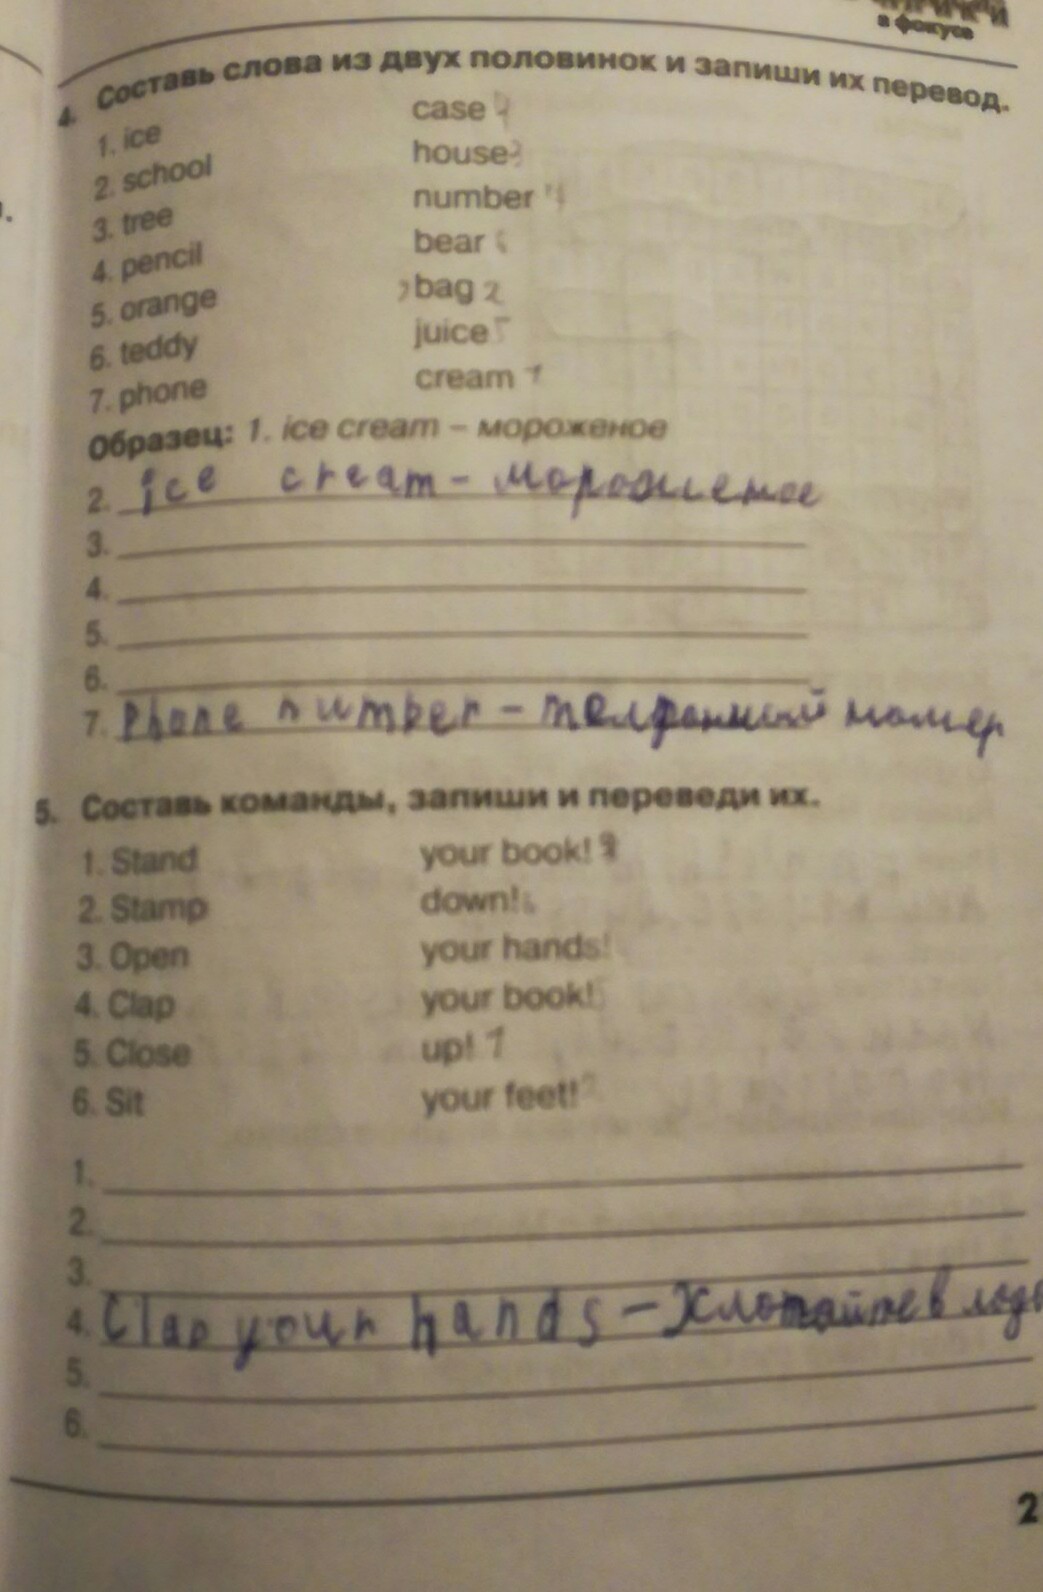 в фокусе
4. Составь слова из двух половинок и запиши их перевод.
1. ice case 4
2. school house 3
3. tree number
4. pencil bear
5. orange bag 2
6. teddy juice 5
7. phone cream 1
Образец: 1. ice cream – мороженое
2. ice cream - мороженое
3.
4.
5.
6.
7. Phone number - телфонный номер
5. Составь команды, запиши и переведи их.
1. Stand your book! 3
2. Stamp down!
3. Open your hands!
4. Clap your book!
5. Close up! 1
6. Sit your feet! 2
1.
2.
3.
4. Clap your hands - Хлопайте в
5.
6.
2